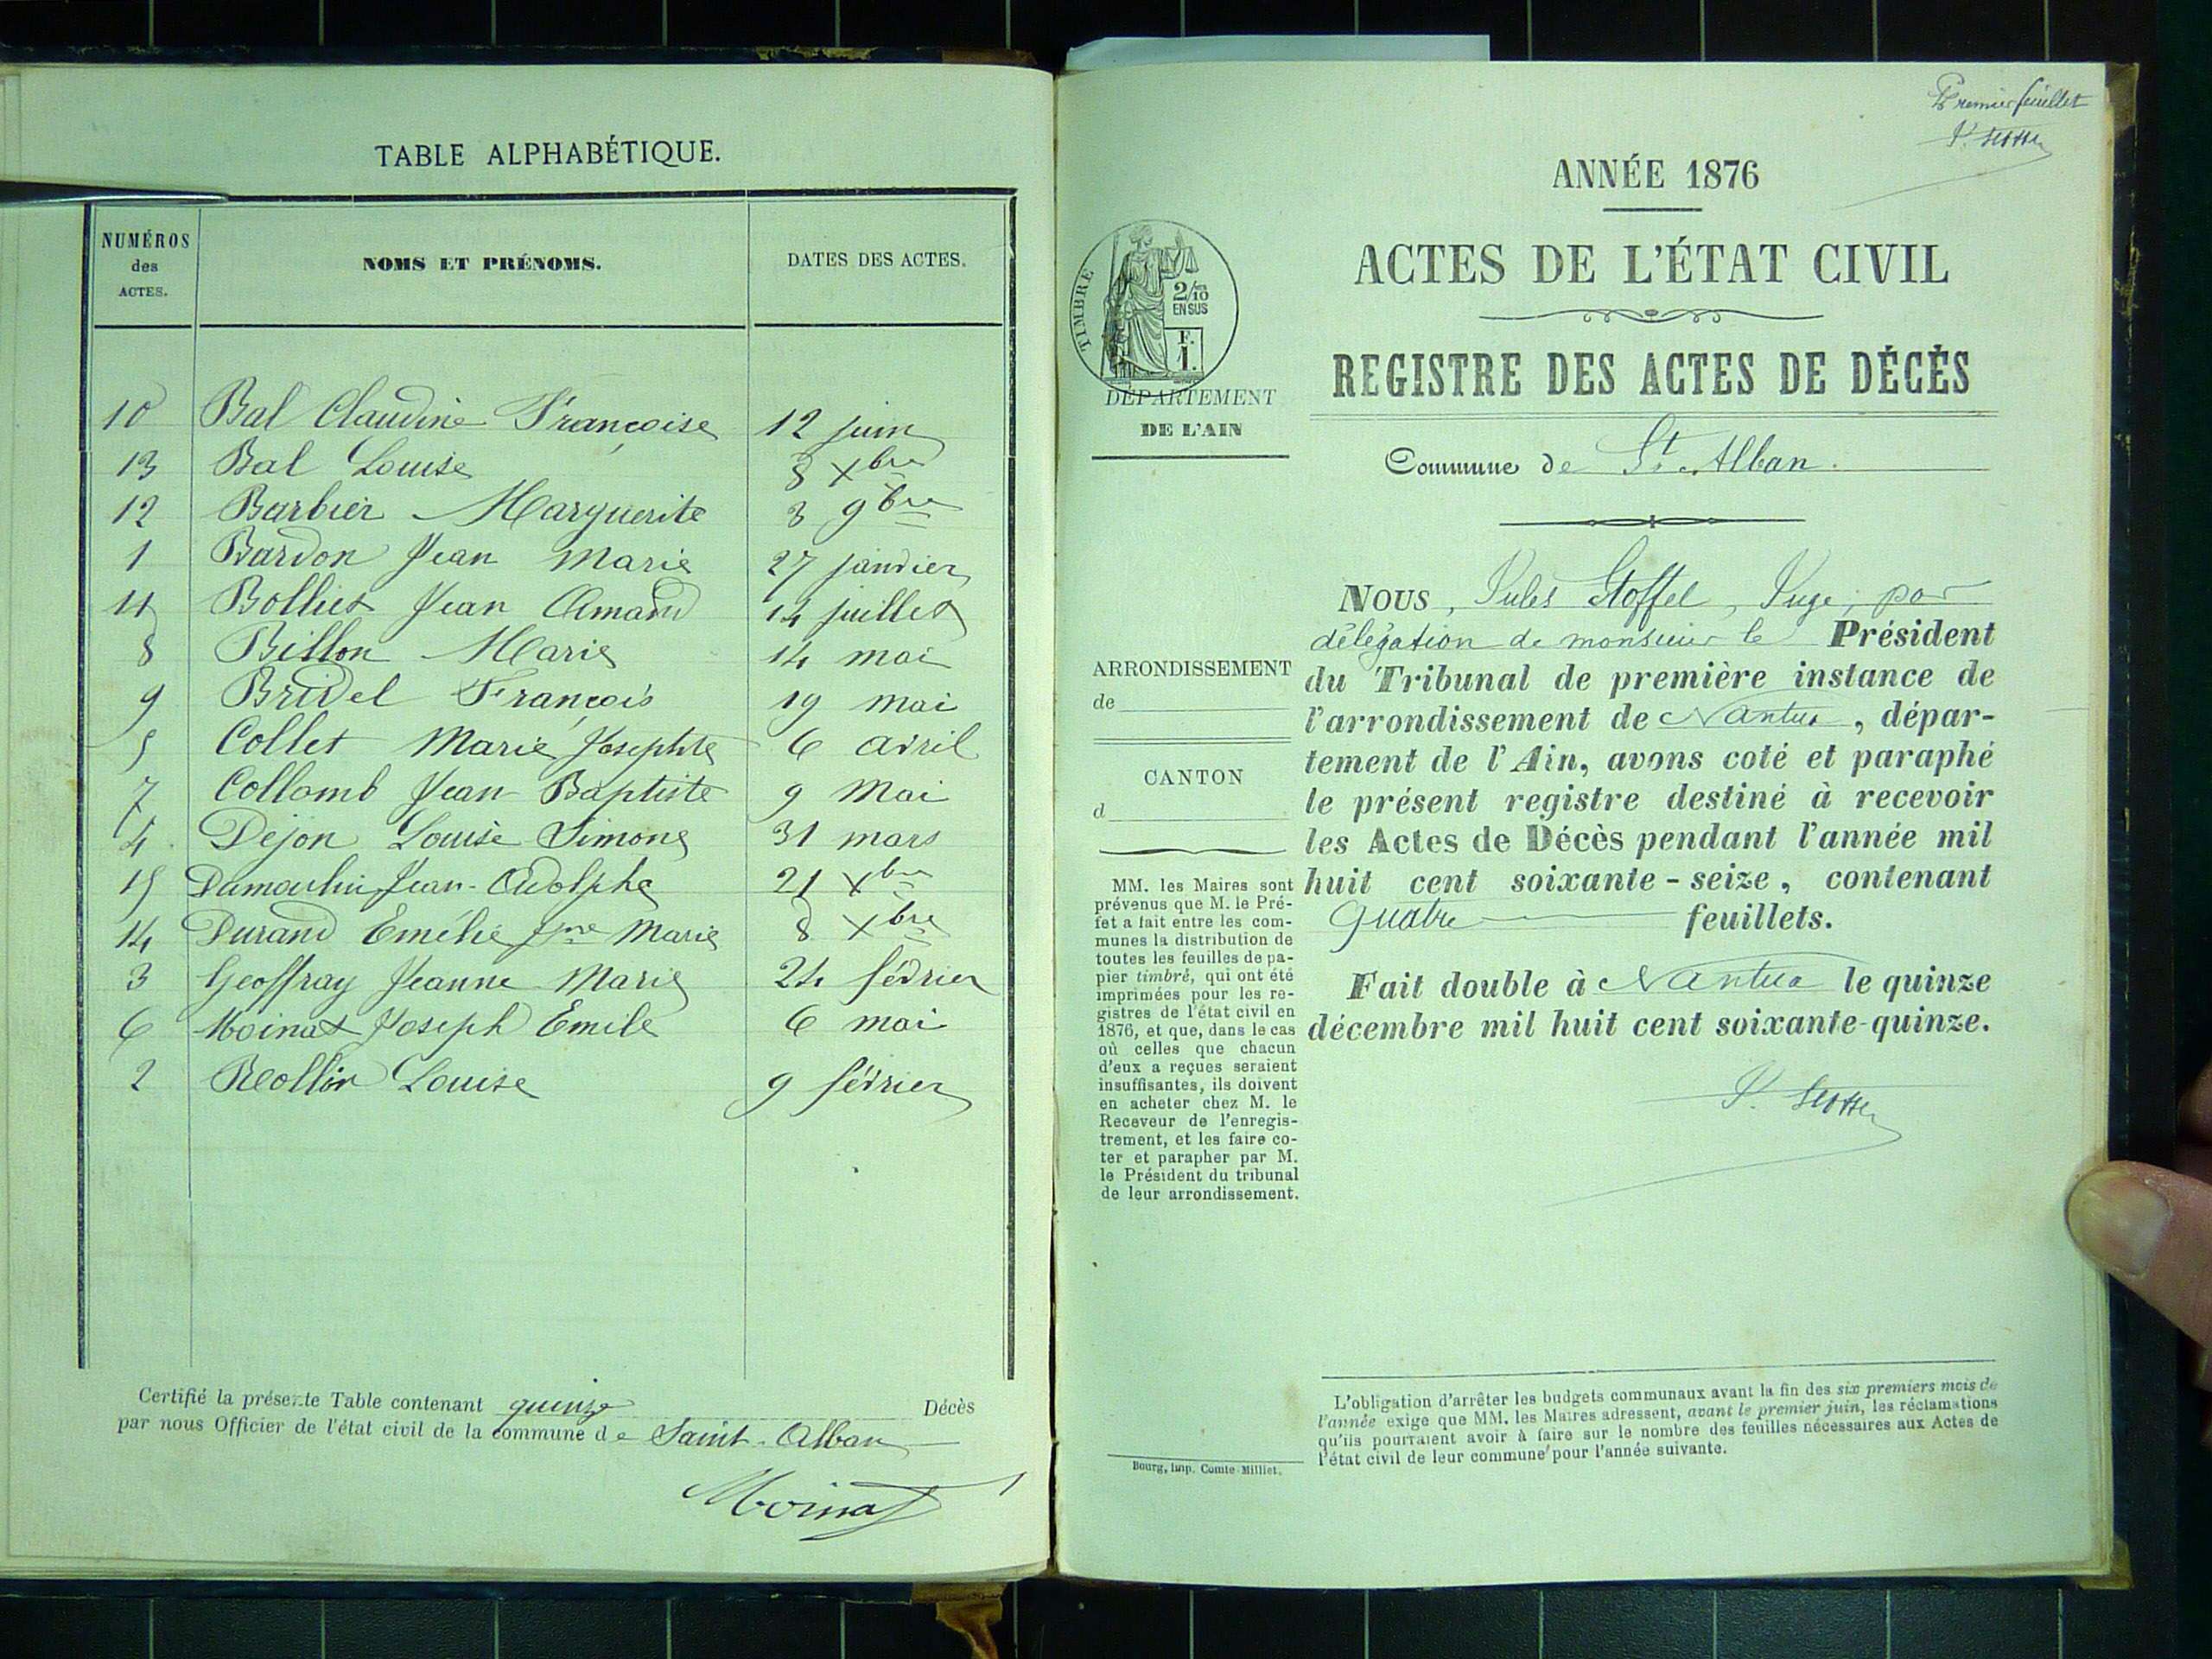 TABLE ALPHABÉTIQUE.
NUMÉROS des ACTES. NOMS ET PRÉNOMS. DATES DES ACTES.
10 Bal Claudine Françoise 12 juin
13 Bal Louise 8 Xbre
12 Barbier Marguerite 3 9bre
1 Bardon Jean Marie 27 janvier
11 Bolliet Jean Amand 14 juillet
8 Billon Marie 14 mai
9 Bridel François 19 mai
5 Collet Marie Josephte 6 avril
7 Collomb Jean Baptiste 9 Mai
4 Dejon Louise Simone 31 mars
15 Dumoulin Jean-Adolphe 21 Xbre
14 Durand Emélie Jne Marie 8 Xbre
3 Geoffray Jeanne Marie 24 février
6 Moinat Joseph Emile 6 mai
2 Rollin Louise 9 février
Certifié la présente Table contenant quinze Décès
par nous Officier de l'état civil de la commune de Saint-Alban
Moinat
Premier feuillet
J. Stoffel
ANNÉE 1876
ACTES DE L'ÉTAT CIVIL
REGISTRE DES ACTES DE DÉCÈS
TIMBRE
2/10
EN SUS
F.
1.
DÉPARTEMENT
DE L'AIN
Commune de St. Alban.
ARRONDISSEMENT
de
CANTON
d
MM. les Maires sont
prévenus que M. le Pré-
fet a fait entre les com-
munes la distribution de
toutes les feuilles de pa-
pier timbré, qui ont été
imprimées pour les re-
gistres de l'état civil en
1876, et que, dans le cas
où celles que chacun
d'eux a reçues seraient
insuffisantes, ils doivent
en acheter chez M. le
Receveur de l'enregis-
trement, et les faire co-
ter et parapher par M.
le Président du tribunal
de leur arrondissement.
NOUS, Jules Stoffel, Juge, par
délégation de monsieur le Président
du Tribunal de première instance de
l'arrondissement de Nantua, dépar-
tement de l'Ain, avons coté et paraphé
le présent registre destiné à recevoir
les Actes de Décès pendant l'année mil
huit cent soixante-seize, contenant
quatre feuillets.
Fait double à Nantua le quinze
décembre mil huit cent soixante-quinze.
J. Stoffel
L'obligation d'arrêter les budgets communaux avant la fin des six premiers mois de
l'année exige que MM. les Maires adressent, avant le premier juin, les réclamations
qu'ils pourraient avoir à faire sur le nombre des feuilles nécessaires aux Actes de
l'état civil de leur commune pour l'année suivante.
Bourg, imp. Comte-Milliet.